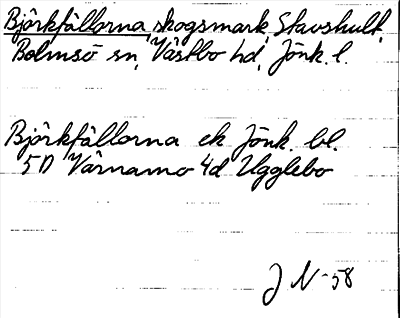 Björkfällorna, skogsmark, Stavshult,
Bolmsö sn, Västbo hd, Jönk. l.
Björkfällorna ek Jönk. bl.
5D Värnamo 4d Ugglebo
J N-58